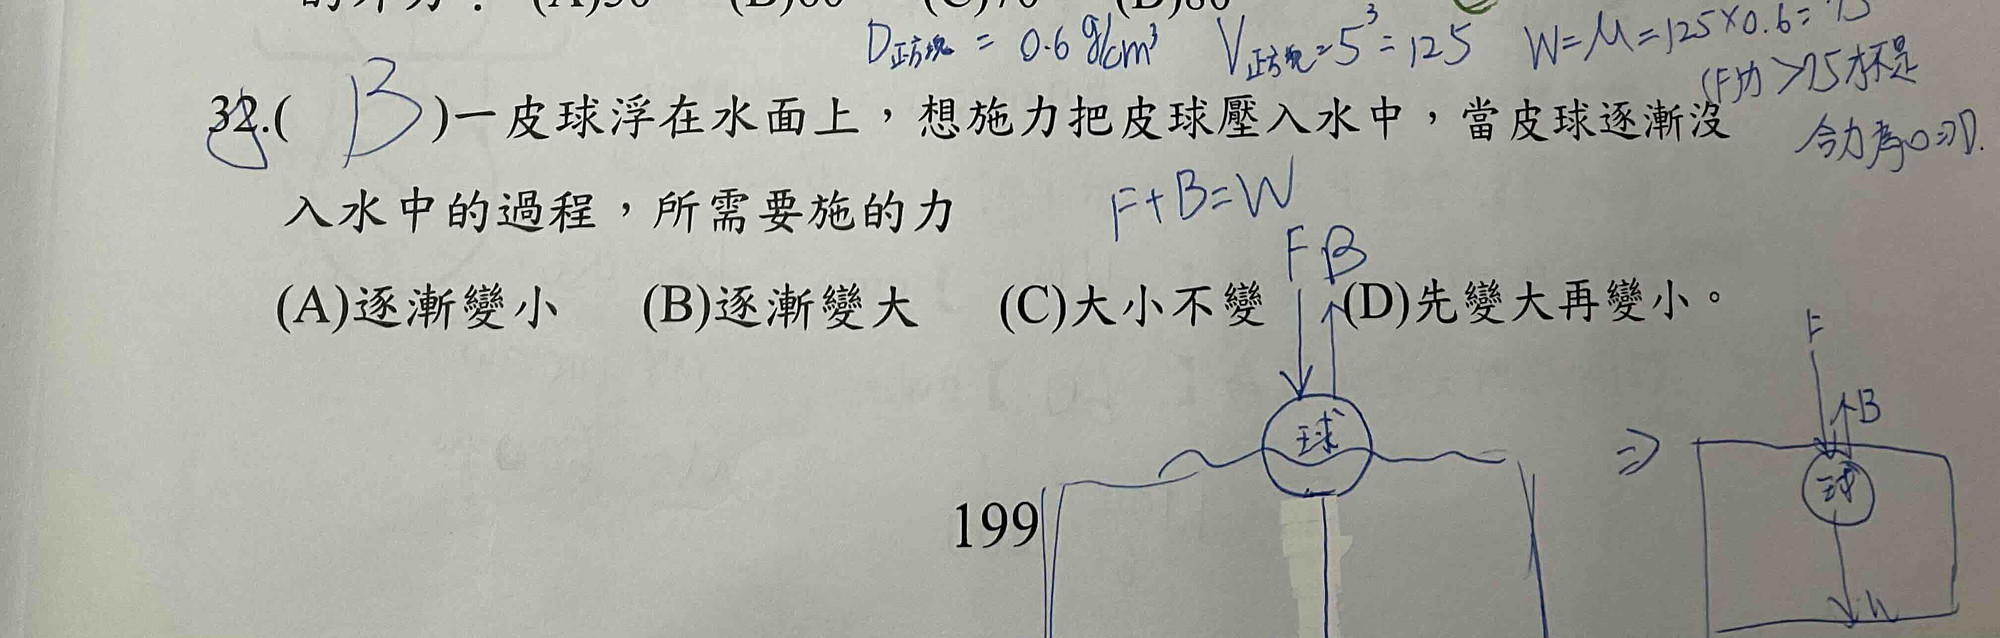 的外力？ (A)50 (B)60 (C)70 (D)80
D正方塊 = 0.6 g/cm³ V正方塊=5³=125 W=M=125×0.6=75
(F力) >75才不是
合力為0
32.( B )一皮球浮在水面上，想施力把皮球壓入水中，當皮球逐漸沒
入水中的過程，所需要施的力
F+B=W
(A)逐漸變小 (B)逐漸變大 (C)大小不變 (D)先變大再變小。
F B
球
⇒
F
B
球
W
199